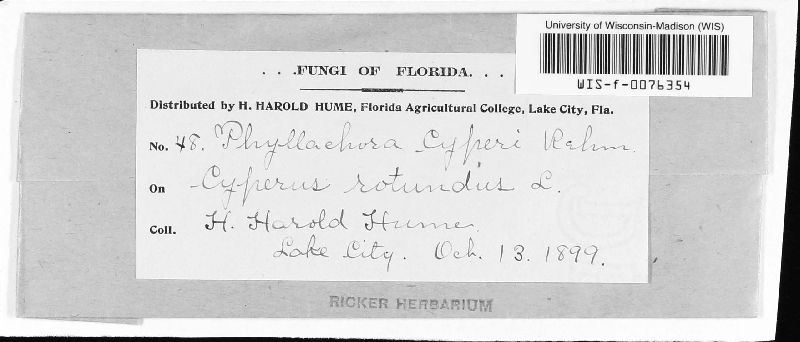 University of Wisconsin-Madison (WIS)
WIS-f-0076354
. . .FUNGI OF FLORIDA. . .
Distributed by H. HAROLD HUME, Florida Agricultural College, Lake City, Fla.
No. 48. Phyllachora Cyperi Rehm.
On Cyperus rotundus L.
Coll. H. Harold Hume.
Lake City. Oct. 13. 1899.
RICKER HERBARIUM